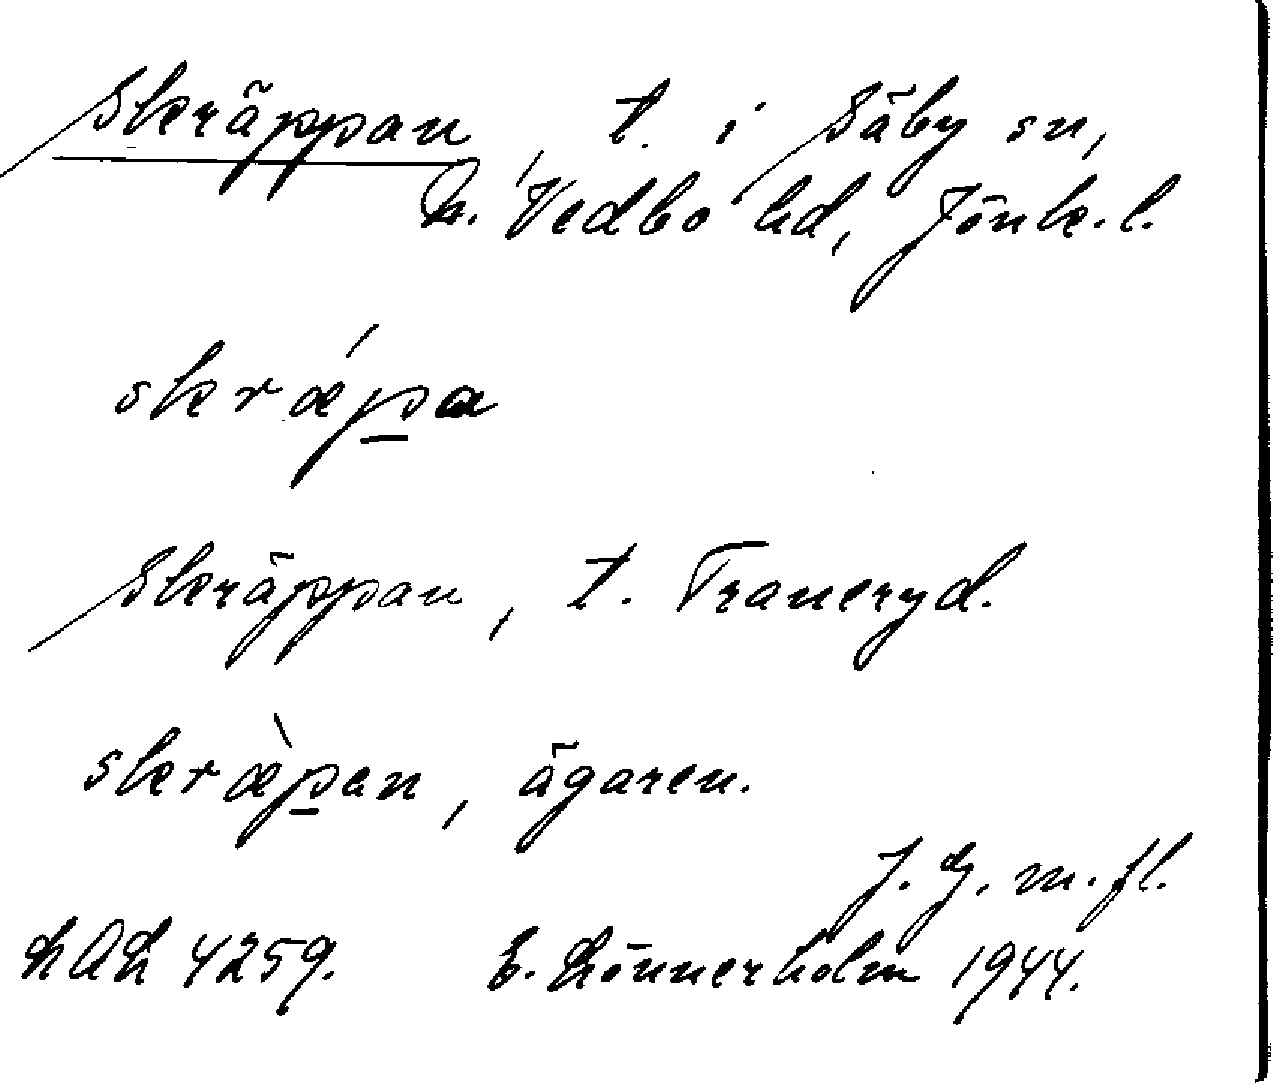 Skräppan, t. i Säby sn,
N. Vedbo hd, Jönk. l.
skræ´pa
Skräppan, t. Traneryd.
skræ`pan, ägaren.
J. G. m. fl.
LAL 4259. E. Lönnerholm 1944.